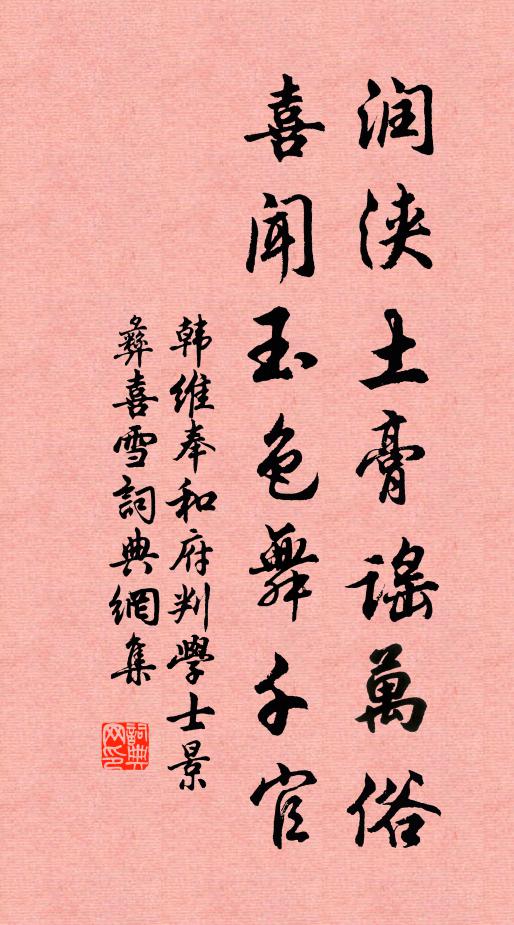 润浃土膏謠萬俗
喜闻玉色舞千官
韩維奉和府判學士景
彝喜雪詞典網集
詞典網印